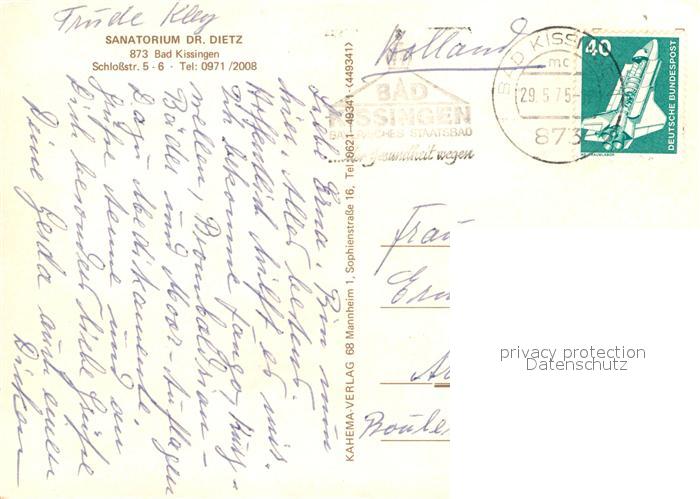 Trude Kley
SANATORIUM DR. DIETZ
873 Bad Kissingen
Schloßstr. 5 - 6 · Tel: 0971 /2008
Liebe Erna, Bin nun
hier. Alles bestens.
Hoffentlich hilft es mir.
Ich bekomme Fango, Kurz-
wellen,
Bäder und Moor-Auflagen
Dazu Medikamente.
Grüße Aenne und an
Dich besonders liebe Grüße
Deine Gerda auch einen
Dicken
KAHEMA-VERLAG 68 Mannheim 1, Sophienstraße 16, Tel. (0621) 49341 (449341)
Holland
BAD
KISSINGEN
BAYERISCHES STAATSBAD
der gesundheit wegen
BAD KISSIN
mc
29.5.75
873
40
DEUTSCHE BUNDESPOST
Frau
privacy protection
Datenschutz